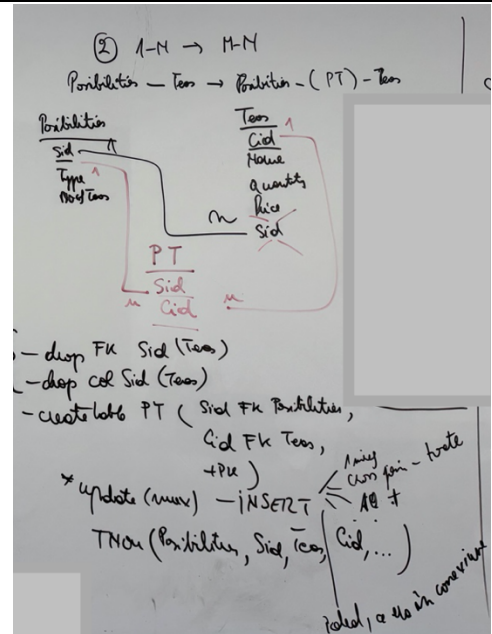 ② 1-M → M-N
Posibilities — Teas → Posibilities - (PT) - Teas
Posibilities
Sid 1
Type 1
No of Teas
Teas
Cid 1
Name
Quantity
Price
n Sid
PT
n Sid
Cid n
- drop FK Sid (Teas)
- drop col Sid (Teas)
- create table PT ( Sid FK Posibilities,
Cid FK Teas,
+PK )
* update (mux) - INSERT
cross join - toate
TNou (Posibilities, Sid, Teas, Cid, ...)